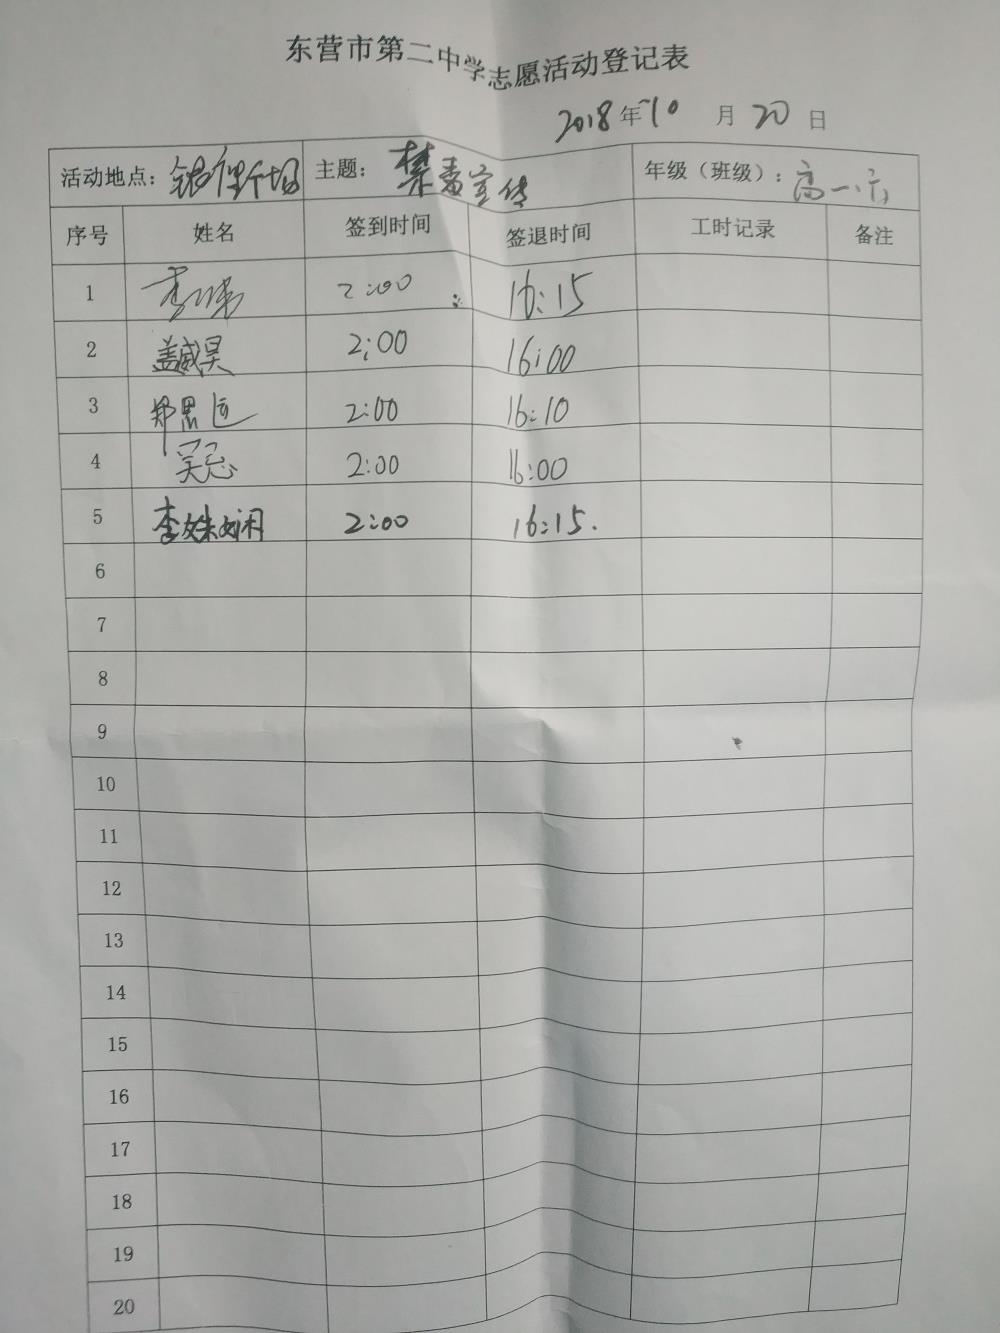 东营市第二中学志愿活动登记表
2018年10月20日
活动地点： 主题：禁毒宣传 年级（班级）：高一.六
序号 姓名 签到时间 签退时间 工时记录 备注
1 2:00 16:15
2 盖威昊 2:00 16:00
3 郑思远 2:00 16:10
4 吴忌 2:00 16:00
5 李姝娴 2:00 16:15.
6
7
8
9
10
11
12
13
14
15
16
17
18
19
20